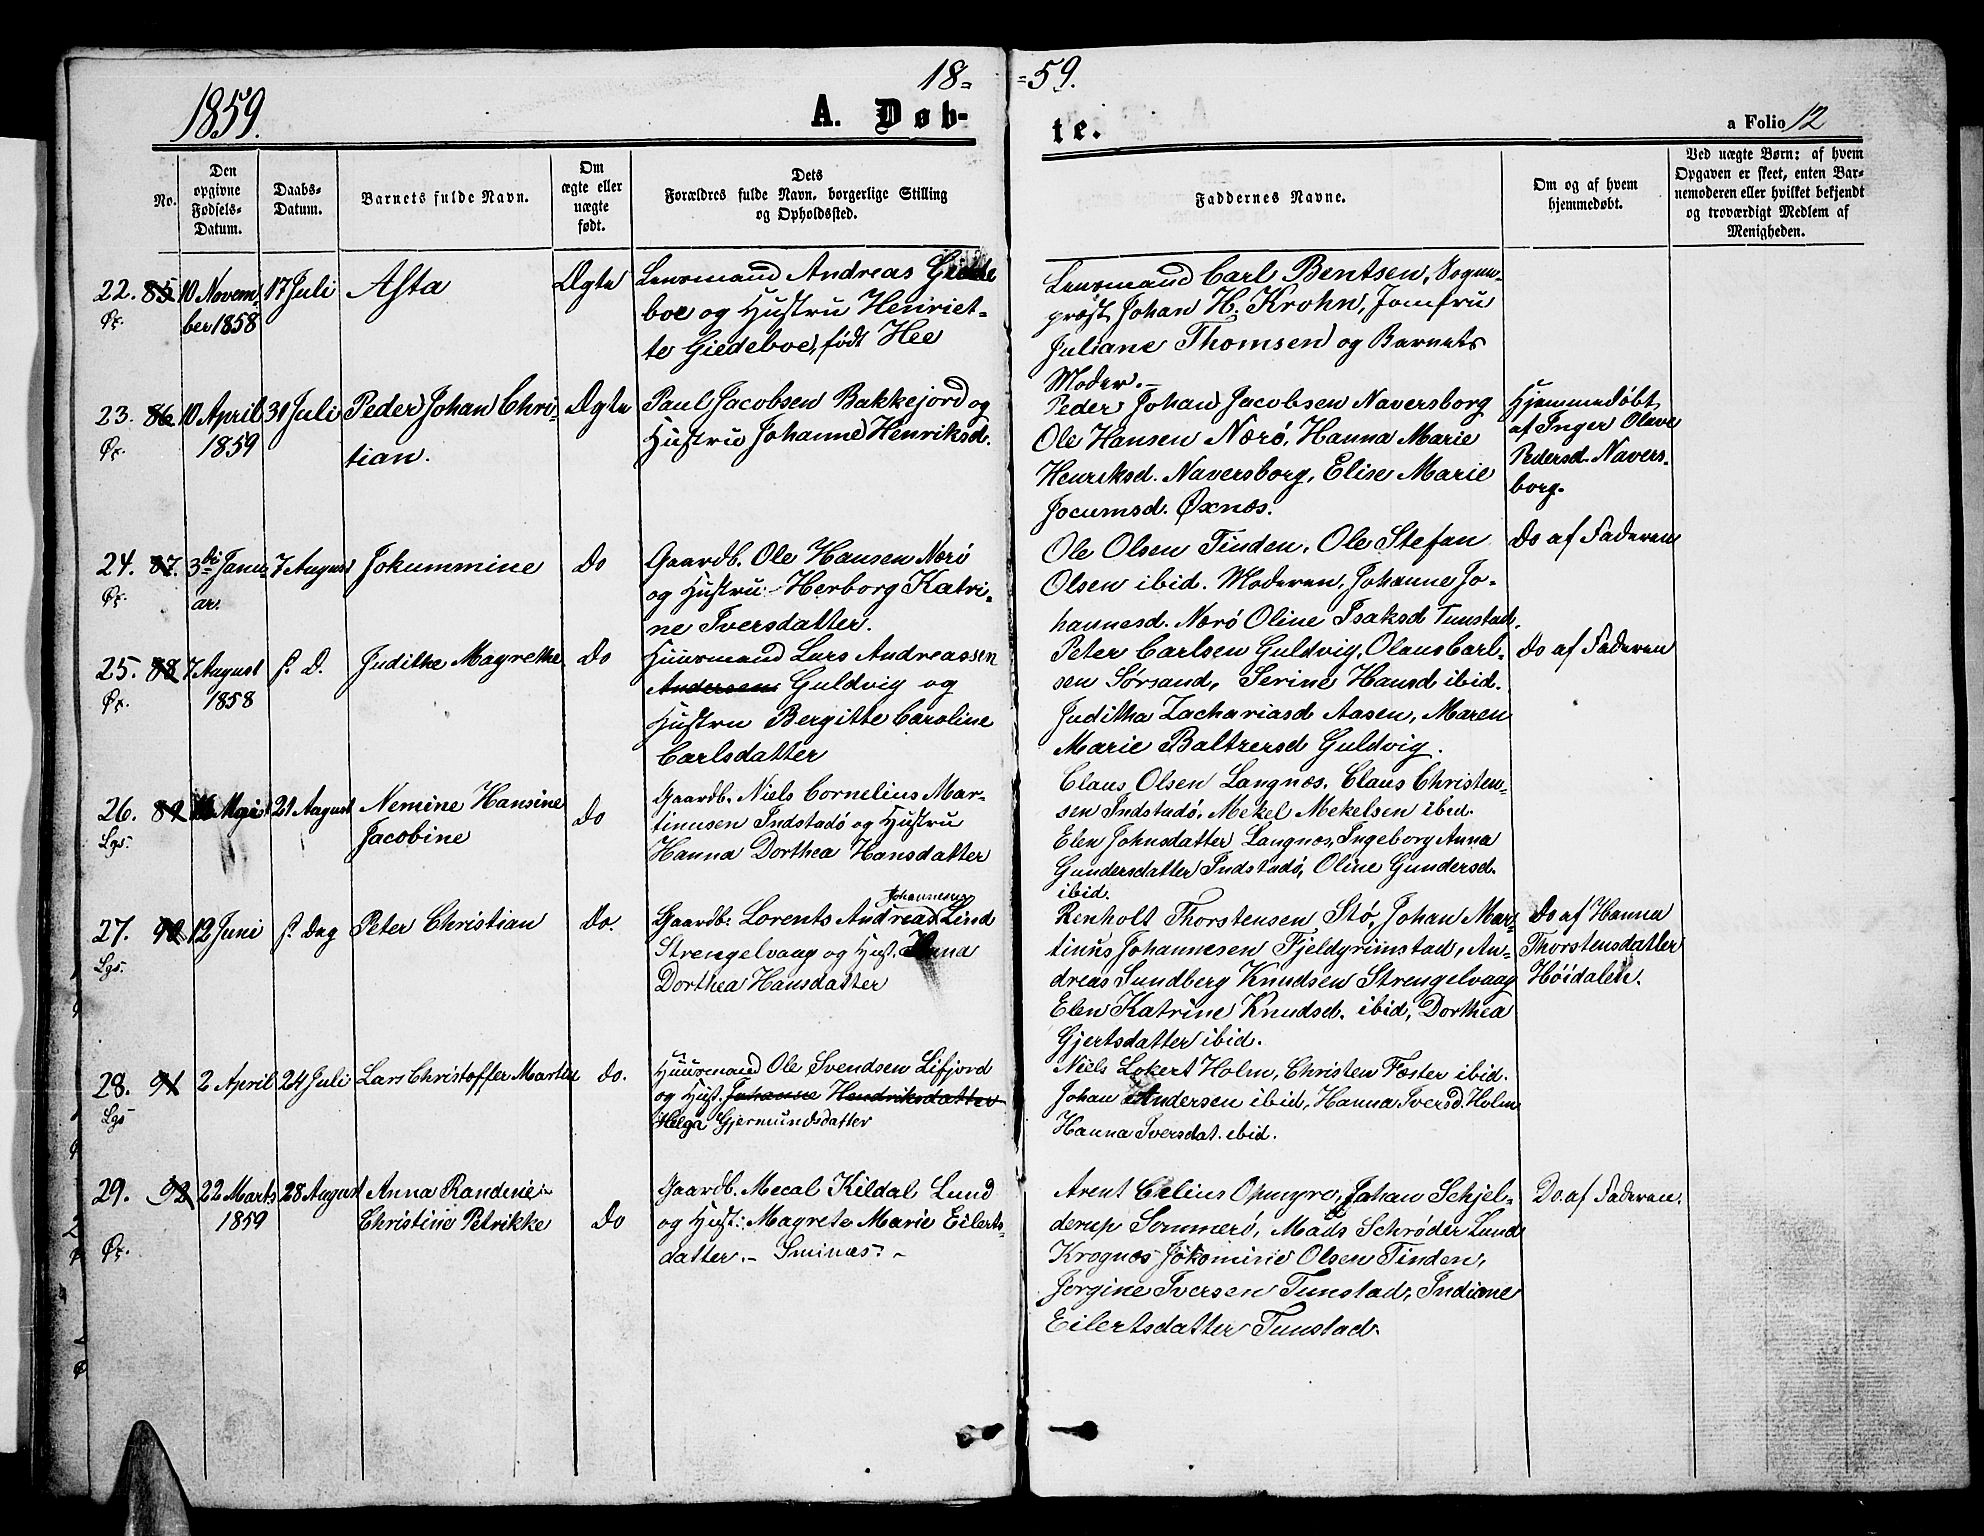 18= =59.
1859.
A. Døb- te.
a Folio 12
No.
Den opgivne Fødsels-Datum.
Daabs-Datum.
Barnets fulde Navn.
Om ægte eller uægte født.
Dets Forældres fulde Navn, borgerlige Stilling og Opholdssted.
Faddernes Navne.
Om og af hvem hjemmedøbt.
Ved uægte Børn: af hvem Opgaven er skeet, enten Barnemoderen eller hvilket bekjendt og troværdigt Medlem af Menigheden.
22. 85 10 Novem- 17 Juli Asta Ægte Lensmand Andreas Giede
Øx. ber 1858 boe og Hustru Henriet-
te Giedeboe, født Hee
Lensmand Carl Bentsen, Sogne-
præst Johan H. Krohn, Jomfru
Juliane Thomsen og Barnets
Moder.-
23. 86 10 April 31 Juli Peder Johan Chri- Ægte Paul Jacobsen Bakkejord og
Øx. 1859 tian. Hustru Johanne Henriksd.
Peder Johan Jacobsen Naversborg
Ole Hansen Nærö, Hanna Marie
Henriksd. Naversborg, Elise Marie
Jocumsd. Øxnæs.
Hjemmedøbt
af Inger Olave
Pedersd. Navers-
borg.
24. 87. 3die Janu- 7 August Jokummine Do Gaardb. Ole Hansen Nærö
Øx. ar. og Hustru Herborg Katri-
ne Iversdatter.
Ole Olsen Tinden, Ole Stefan
Olsen ibid. Moderen, Johanne Jo-
hannesd. Nærö Oline Isaksd Tunstad.
Do af Faderen
25. 88 7 August s. D. Judithe Magrethe Do Huusmand Lars Andreassen
Øx. 1858 Andersen Guldvig og
Hustru Bergitte Caroline
Carlsdatter
Peter Carlsen Guldvig, Olaus Carl-
sen Sörsand, Serine Hansd ibid.
Juditha Zachariasd Aasen, Maren
Marie Baltzersd Guldvig.
Do af Faderen
26. 89 Mai 21 August Nemine Hansine Do Gaardb. Niels Cornelius Mar-
Lgs. Jacobine tinusen Indstadö og Hustru
Hanna Dorthea Hansdatter
Claus Olsen Langnæs, Claus Christen-
sen Indstadö, Mekel Mekelsen ibid.
Elen Johnsdatter Langnæs, Ingeborg Anna
Gundersdatter Indstadö, Oline Gundersd.
ibid.
27. 90 12 Juni s. Dag Peter Christian Do. Gaardb. Lorents Andreas Johannesen Lind
Lgs. Strengelvaag og Hust. Hanna
Dorthea Hansdatter
Renholt Thorstensen Stö, Johan Mar-
tinus Johannesen Fjeldgrimstad, An-
dreas Sundberg Knudsen Strengelvaag
Elen Katrine Knudsd. ibid, Dorthea
Gjertsdatter ibid.
Do af Hanna
Thorstensdatter
Höidalen.
28. 91 2 April 24 Juli Lars Christoffer Martin Do. Huusmand Ole Svendsen Lifjord
Lgs og Hust. Johanne Hendriksdatter
Helga Gjermundsdatter
Niels Lokert Holm, Christen Fæster ibid.
Johan Andersen ibid, Hanna Iversd. Holm
Hanna Iversdat. ibid.
29. 92 22 Marts 28 August Anna Randine Gaardb. Mecal Kildal Lund
1859 Christine Petrikke Do og Hust: Magrete Marie Eilerts-
Øx. datter.- Sminæs.-
Arent Celius Opmyre, Johan Schjel-
derup Sommerö, Mads Schrøder Lund
Krognæs Jökomine Olsen Tinden,
Jorgine Iversen Tunstad, Indiane
Eilertsdatter Tunstad.
Do. af Faderen.